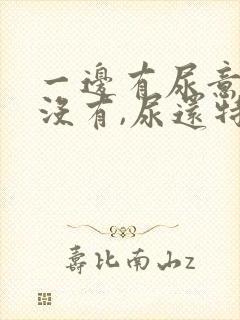 一邊有尿意
沒有,尿還特
壽比南山z